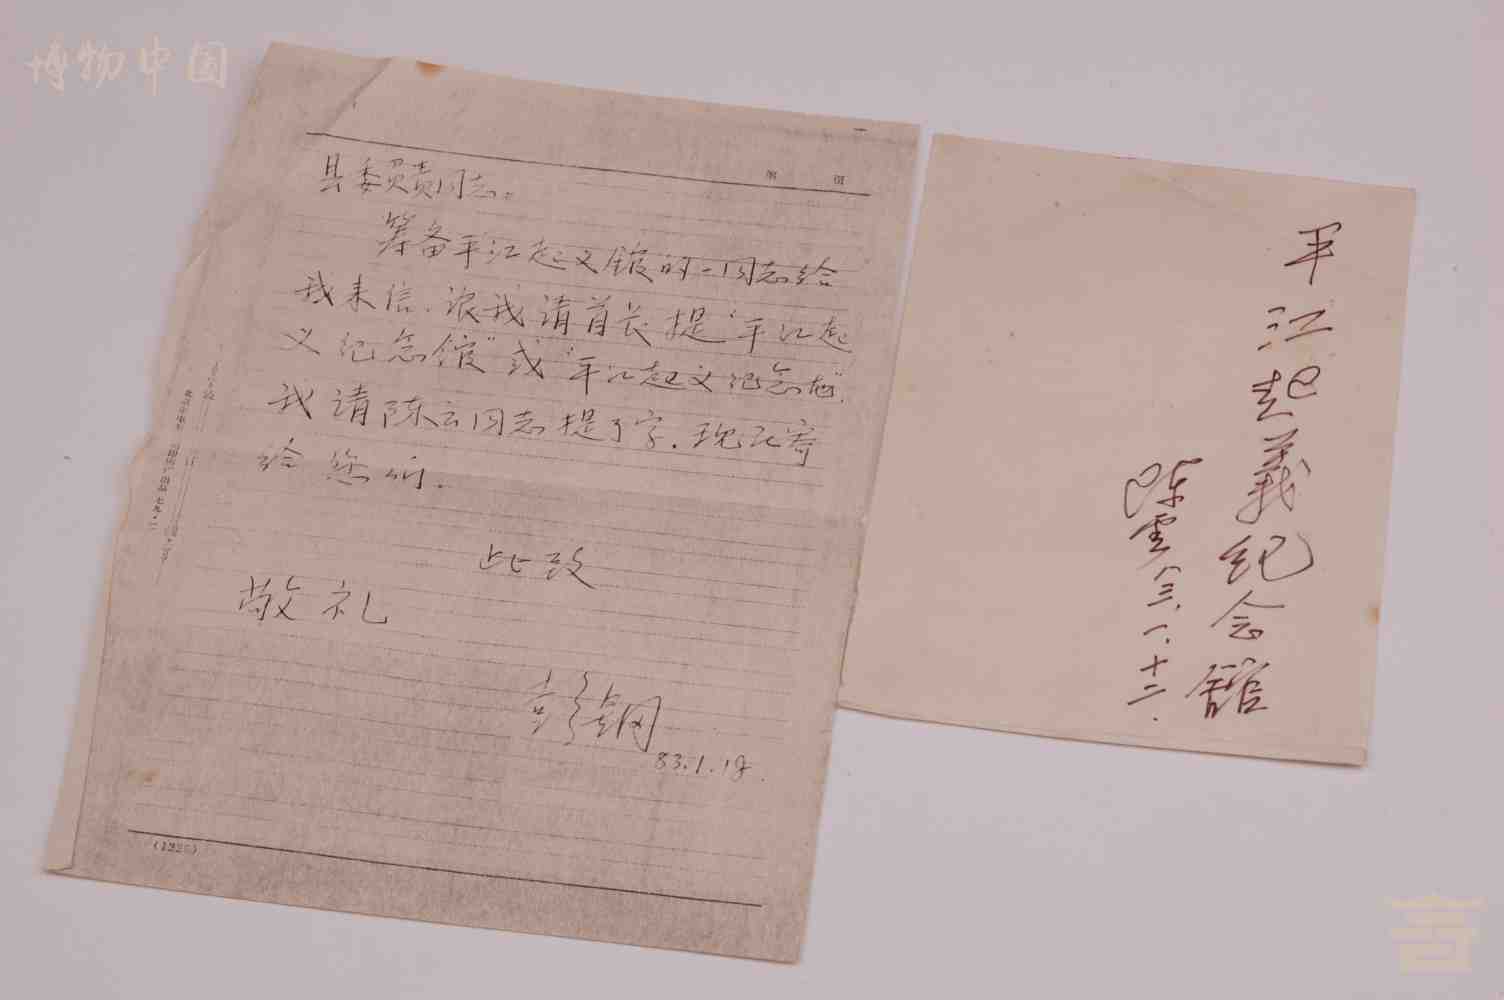 博物中国
第 页
县委负责同志。
筹备平江起义馆的一同志给
我来信,让我请首长提"平江起
义纪念馆"或"平江起义纪念地".
我请陈云同志提了字.现已寄
给您们.
此致
敬礼
彭钢
83.1.18.
(1225)
平江起義纪念館
陈雲
八三.一.十二.